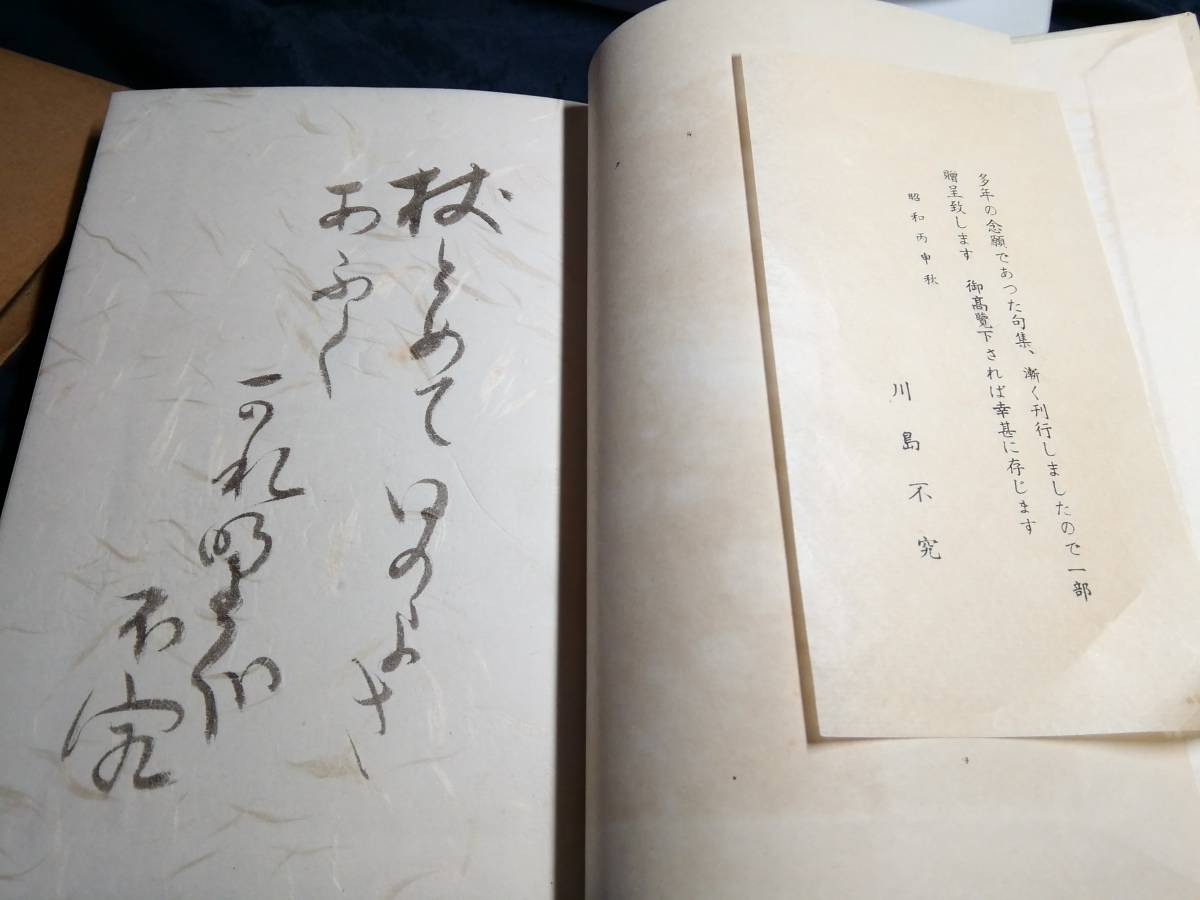 多年の念願であつた句集、漸く刊行しましたので一部
贈呈致します 御髙覧下されば幸甚に存じます
昭和丙申秋
川島不究
杖とめて日のよさ
あふく
可れ野
不究